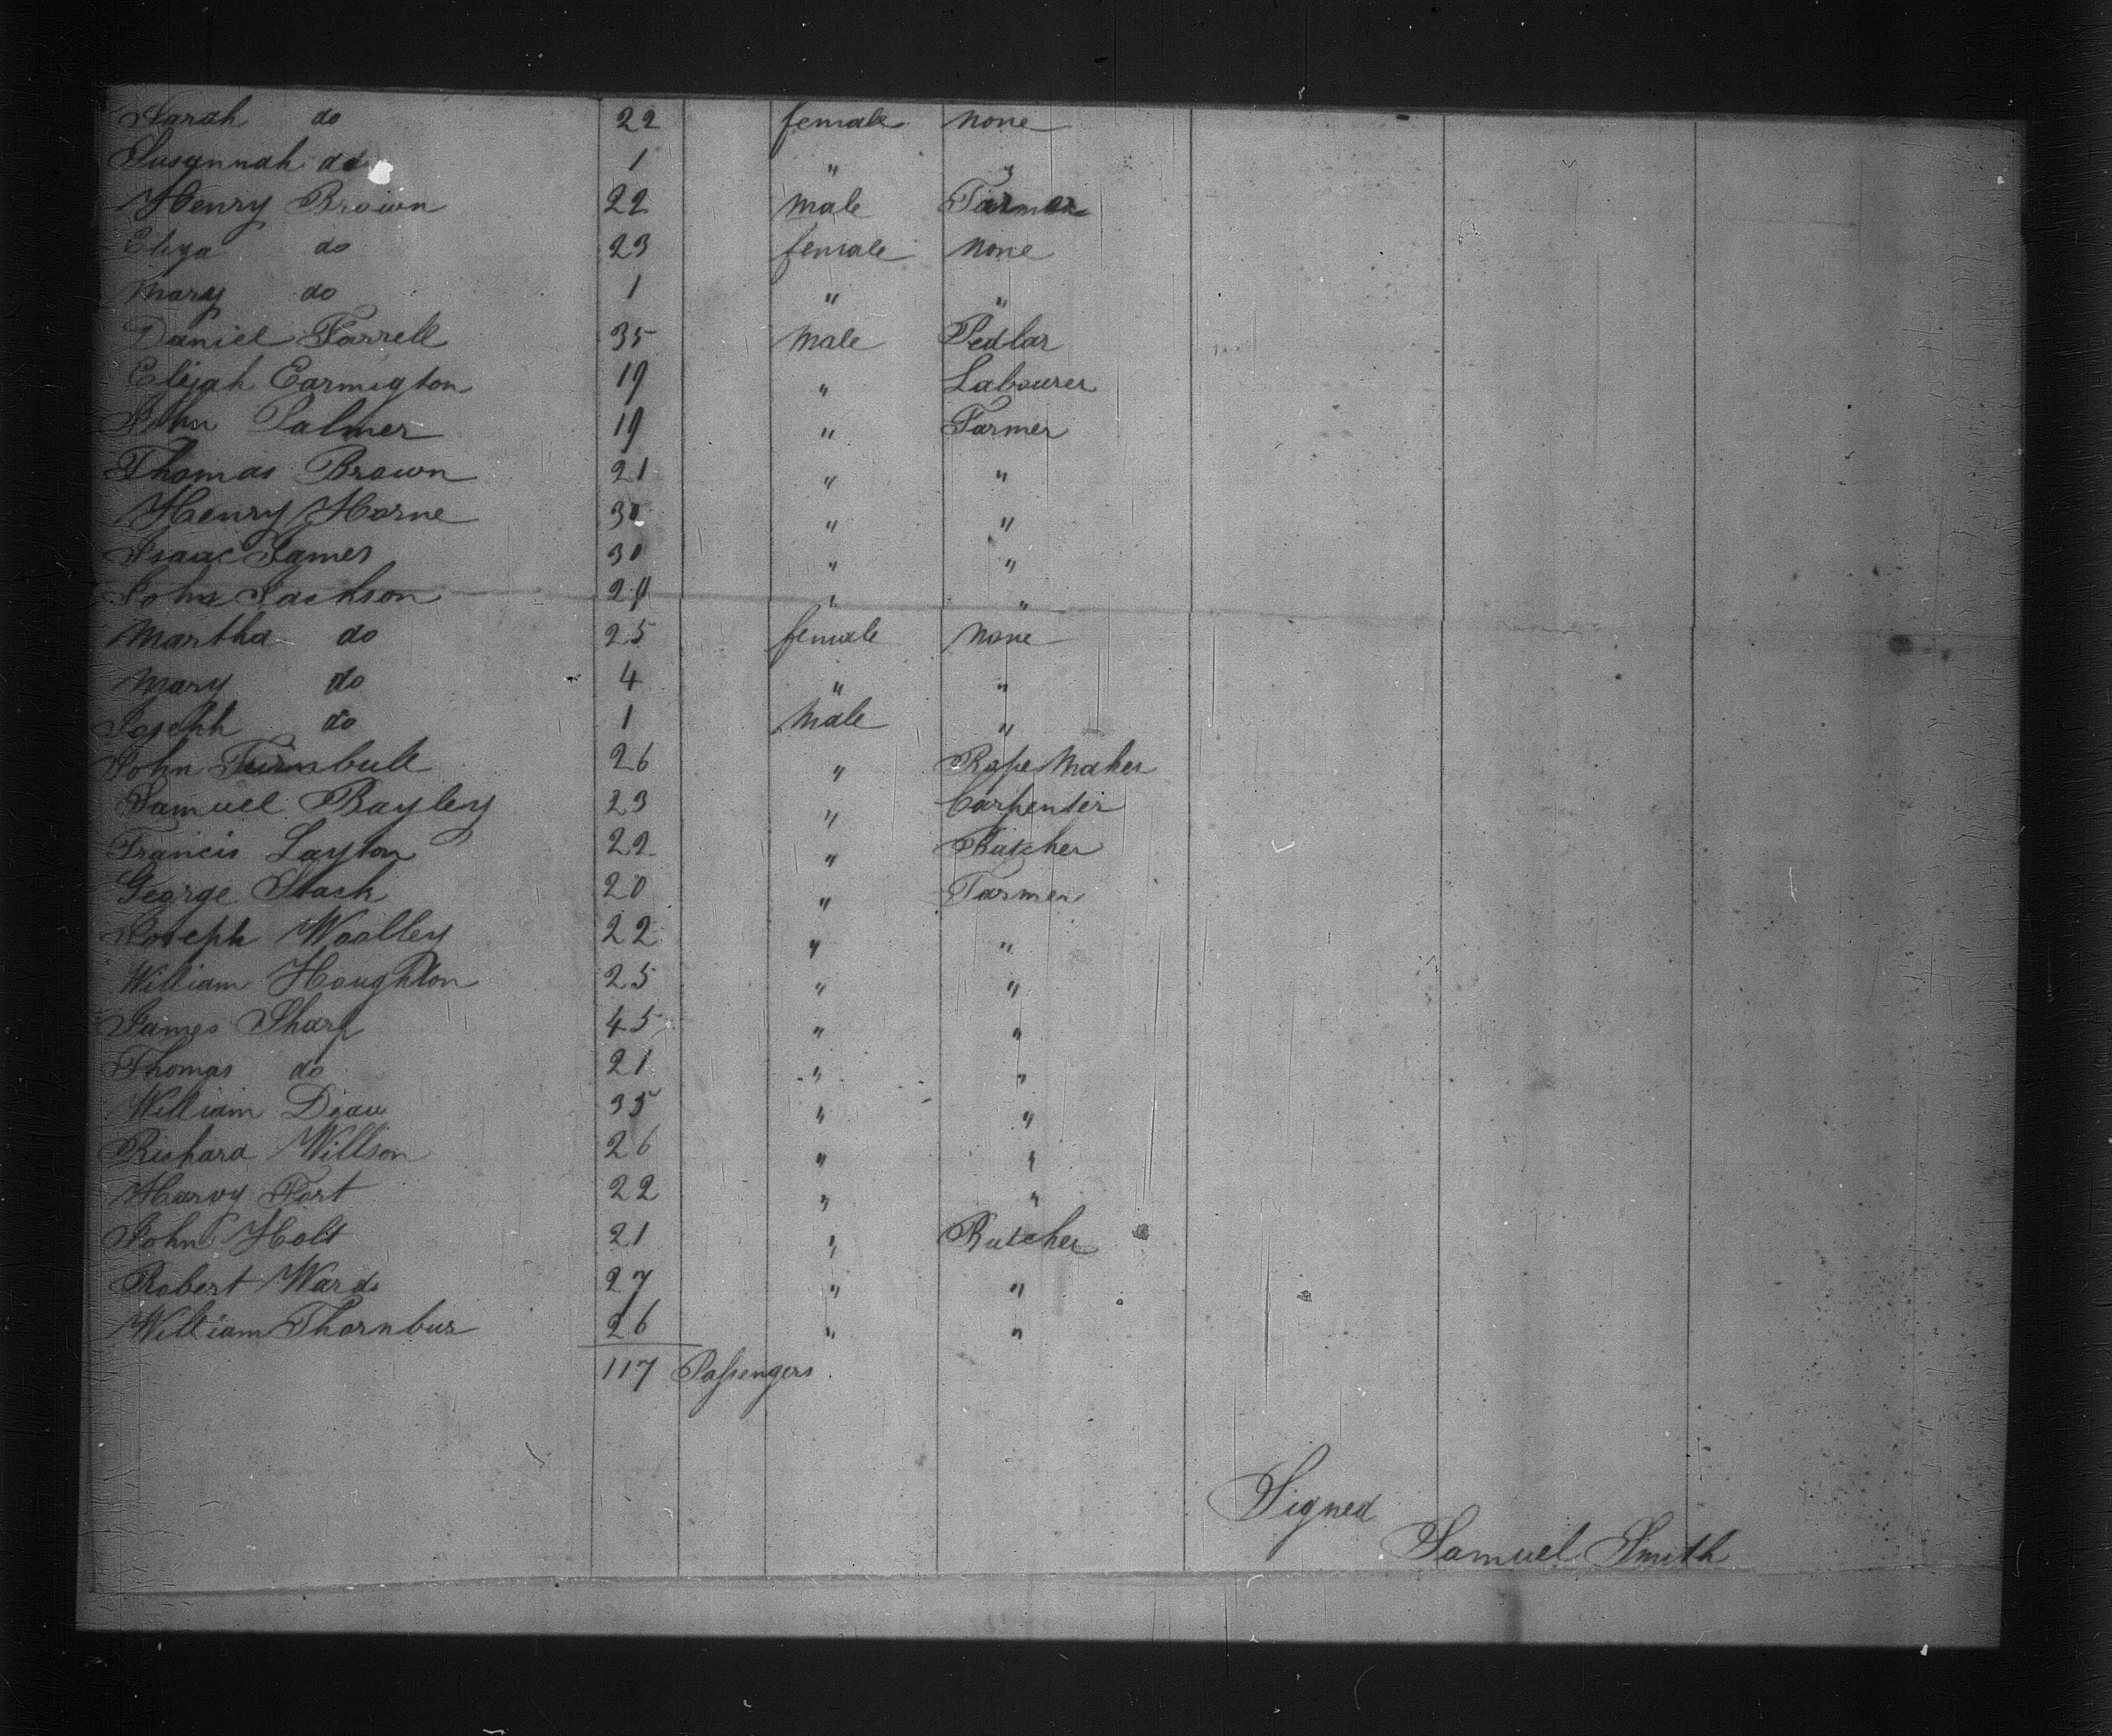 Sarah do 22 female none
Susannah do 1 " "
Henry Brown 22 male Farmer
Eliza do 23 female none
Mary do 1 " "
Daniel Farrell 35 male Pedlar
Elijah Earmigton 19 " Labourer
John Palmer 19 " Farmer
Thomas Brown 21 " "
Henry Horne 30 " "
Isaac James 30 " "
John Jackson 29 " "
Martha do 25 female none
Mary do 4 " "
Joseph do 1 male "
John Turnbull 26 " Rope Maker
Samuel Bayley 23 " Carpenter
Francis Layton 22 " Butcher
George Stack 20 " Farmer
Joseph Woolley 22 " "
William Houghton 25 " "
James Sharp 45 " "
Thomas do 21 " "
William Deau 35 " "
Richard Willson 26 " "
Harvy Fort 22 " "
John Holt 21 " Butcher
Robert Wards 27 " "
William Thornbur 26 " "
117 Passengers
Signed
Samuel Smith